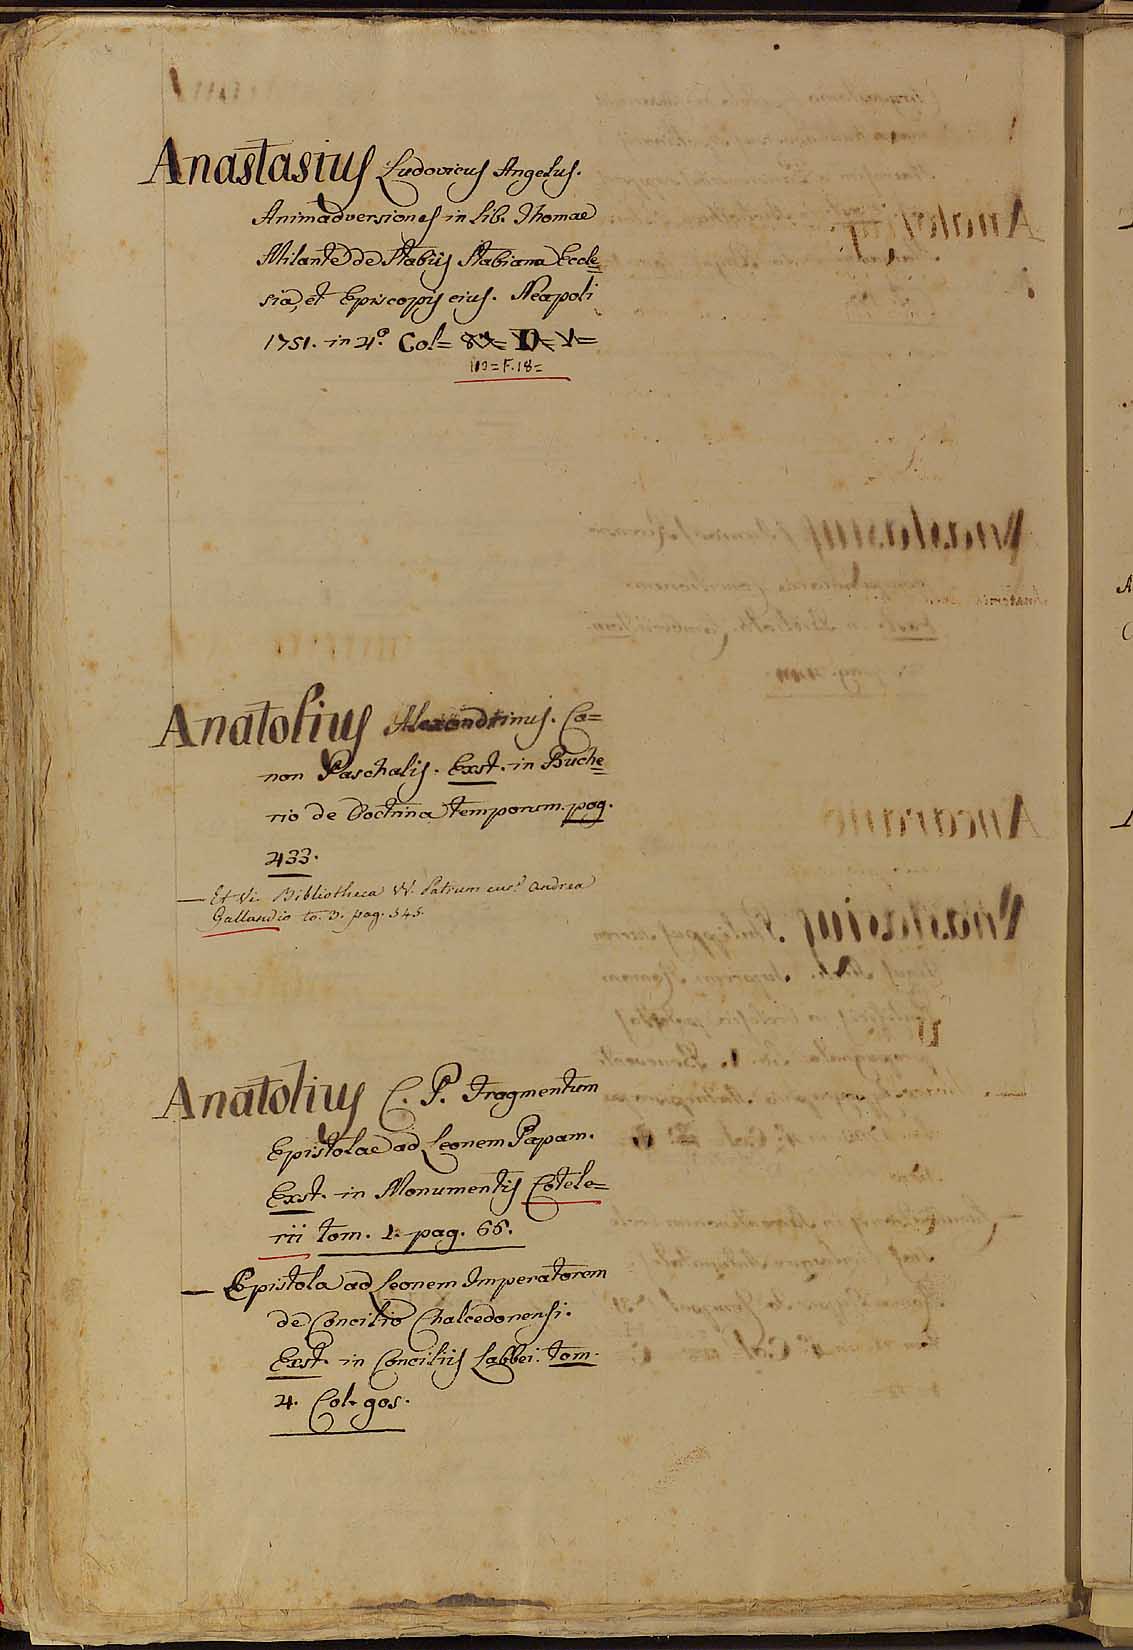 Anastasius Ludovicus Angelus.
Animadversiones in Lib. Thomae
Milante de Stabiis Stabiana Eccle=
sia, et Episcopis eius. Neapoli
1751. in 4º. Col=
113=F.18=
Anatolius Alexandrinus. Ca=
non Paschalis. Exst. in Buche=
rio de Doctrina temporum. pag.
433.
— Et Bibliotheca VV. Patrum Andrea
Gallandio to. 3. pag. 545.
Anatolius C. P. Fragmentum
Epistolae ad Leonem Papam.
Exst. in Monumentis Cotele=
rii tom. 1. pag. 66.
— Epistola ad Leonem Imperatorem
de Concilio Chalcedonensi.
Exst. in Conciliis Labbei. tom.
4. Col. 905.